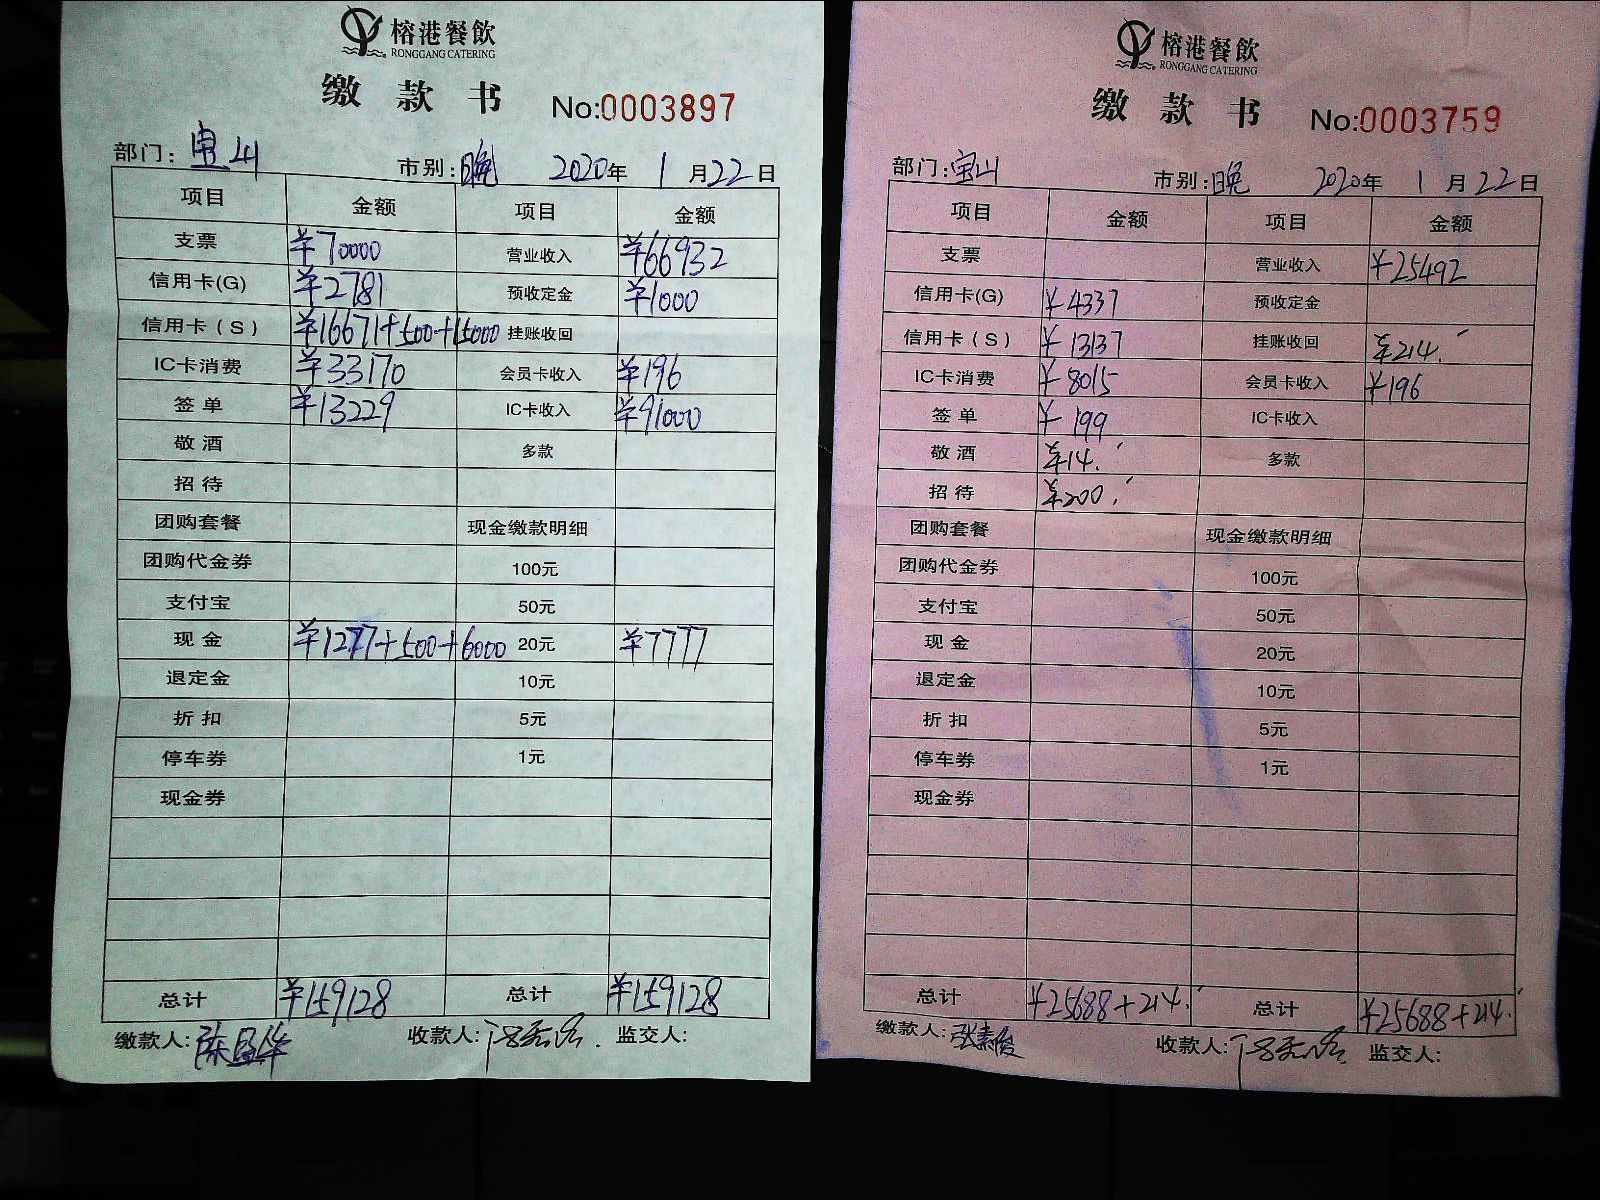 榕港餐飲
RONGGANG CATERING
缴款书 No:0003897
部门：宝山 市别：晚 2020年1月22日
项目 金额 项目 金额
支票 ¥70000 营业收入 ¥66932
信用卡(G) ¥2781 预收定金 ¥1000
信用卡（S） ¥16671+500+15000 挂账收回
IC卡消费 ¥33170 会员卡收入 ¥196
签单 ¥13229 IC卡收入 ¥91000
敬酒 多款
招待
团购套餐 现金缴款明细
团购代金券 100元
支付宝 50元
现金 ¥1277+500+6000 20元 ¥7777
退定金 10元
折扣 5元
停车券 1元
现金券
总计 ¥159128 总计 ¥159128
缴款人：陈昌华 收款人： 监交人：
榕港餐飲
RONGGANG CATERING
缴款书 No:0003759
部门：宝山 市别：晚 2020年1月22日
项目 金额 项目 金额
支票 营业收入 ¥25492
信用卡(G) ¥4337 预收定金
信用卡（S） ¥13137 挂账收回 ¥214.
IC卡消费 ¥8015 会员卡收入 ¥196
签单 ¥199 IC卡收入
敬酒 ¥14. 多款
招待 ¥200.
团购套餐 现金缴款明细
团购代金券 100元
支付宝 50元
现金 20元
退定金 10元
折扣 5元
停车券 1元
现金券
总计 ¥25688+214. 总计 ¥25688+214.
缴款人：张素俊 收款人： 监交人：